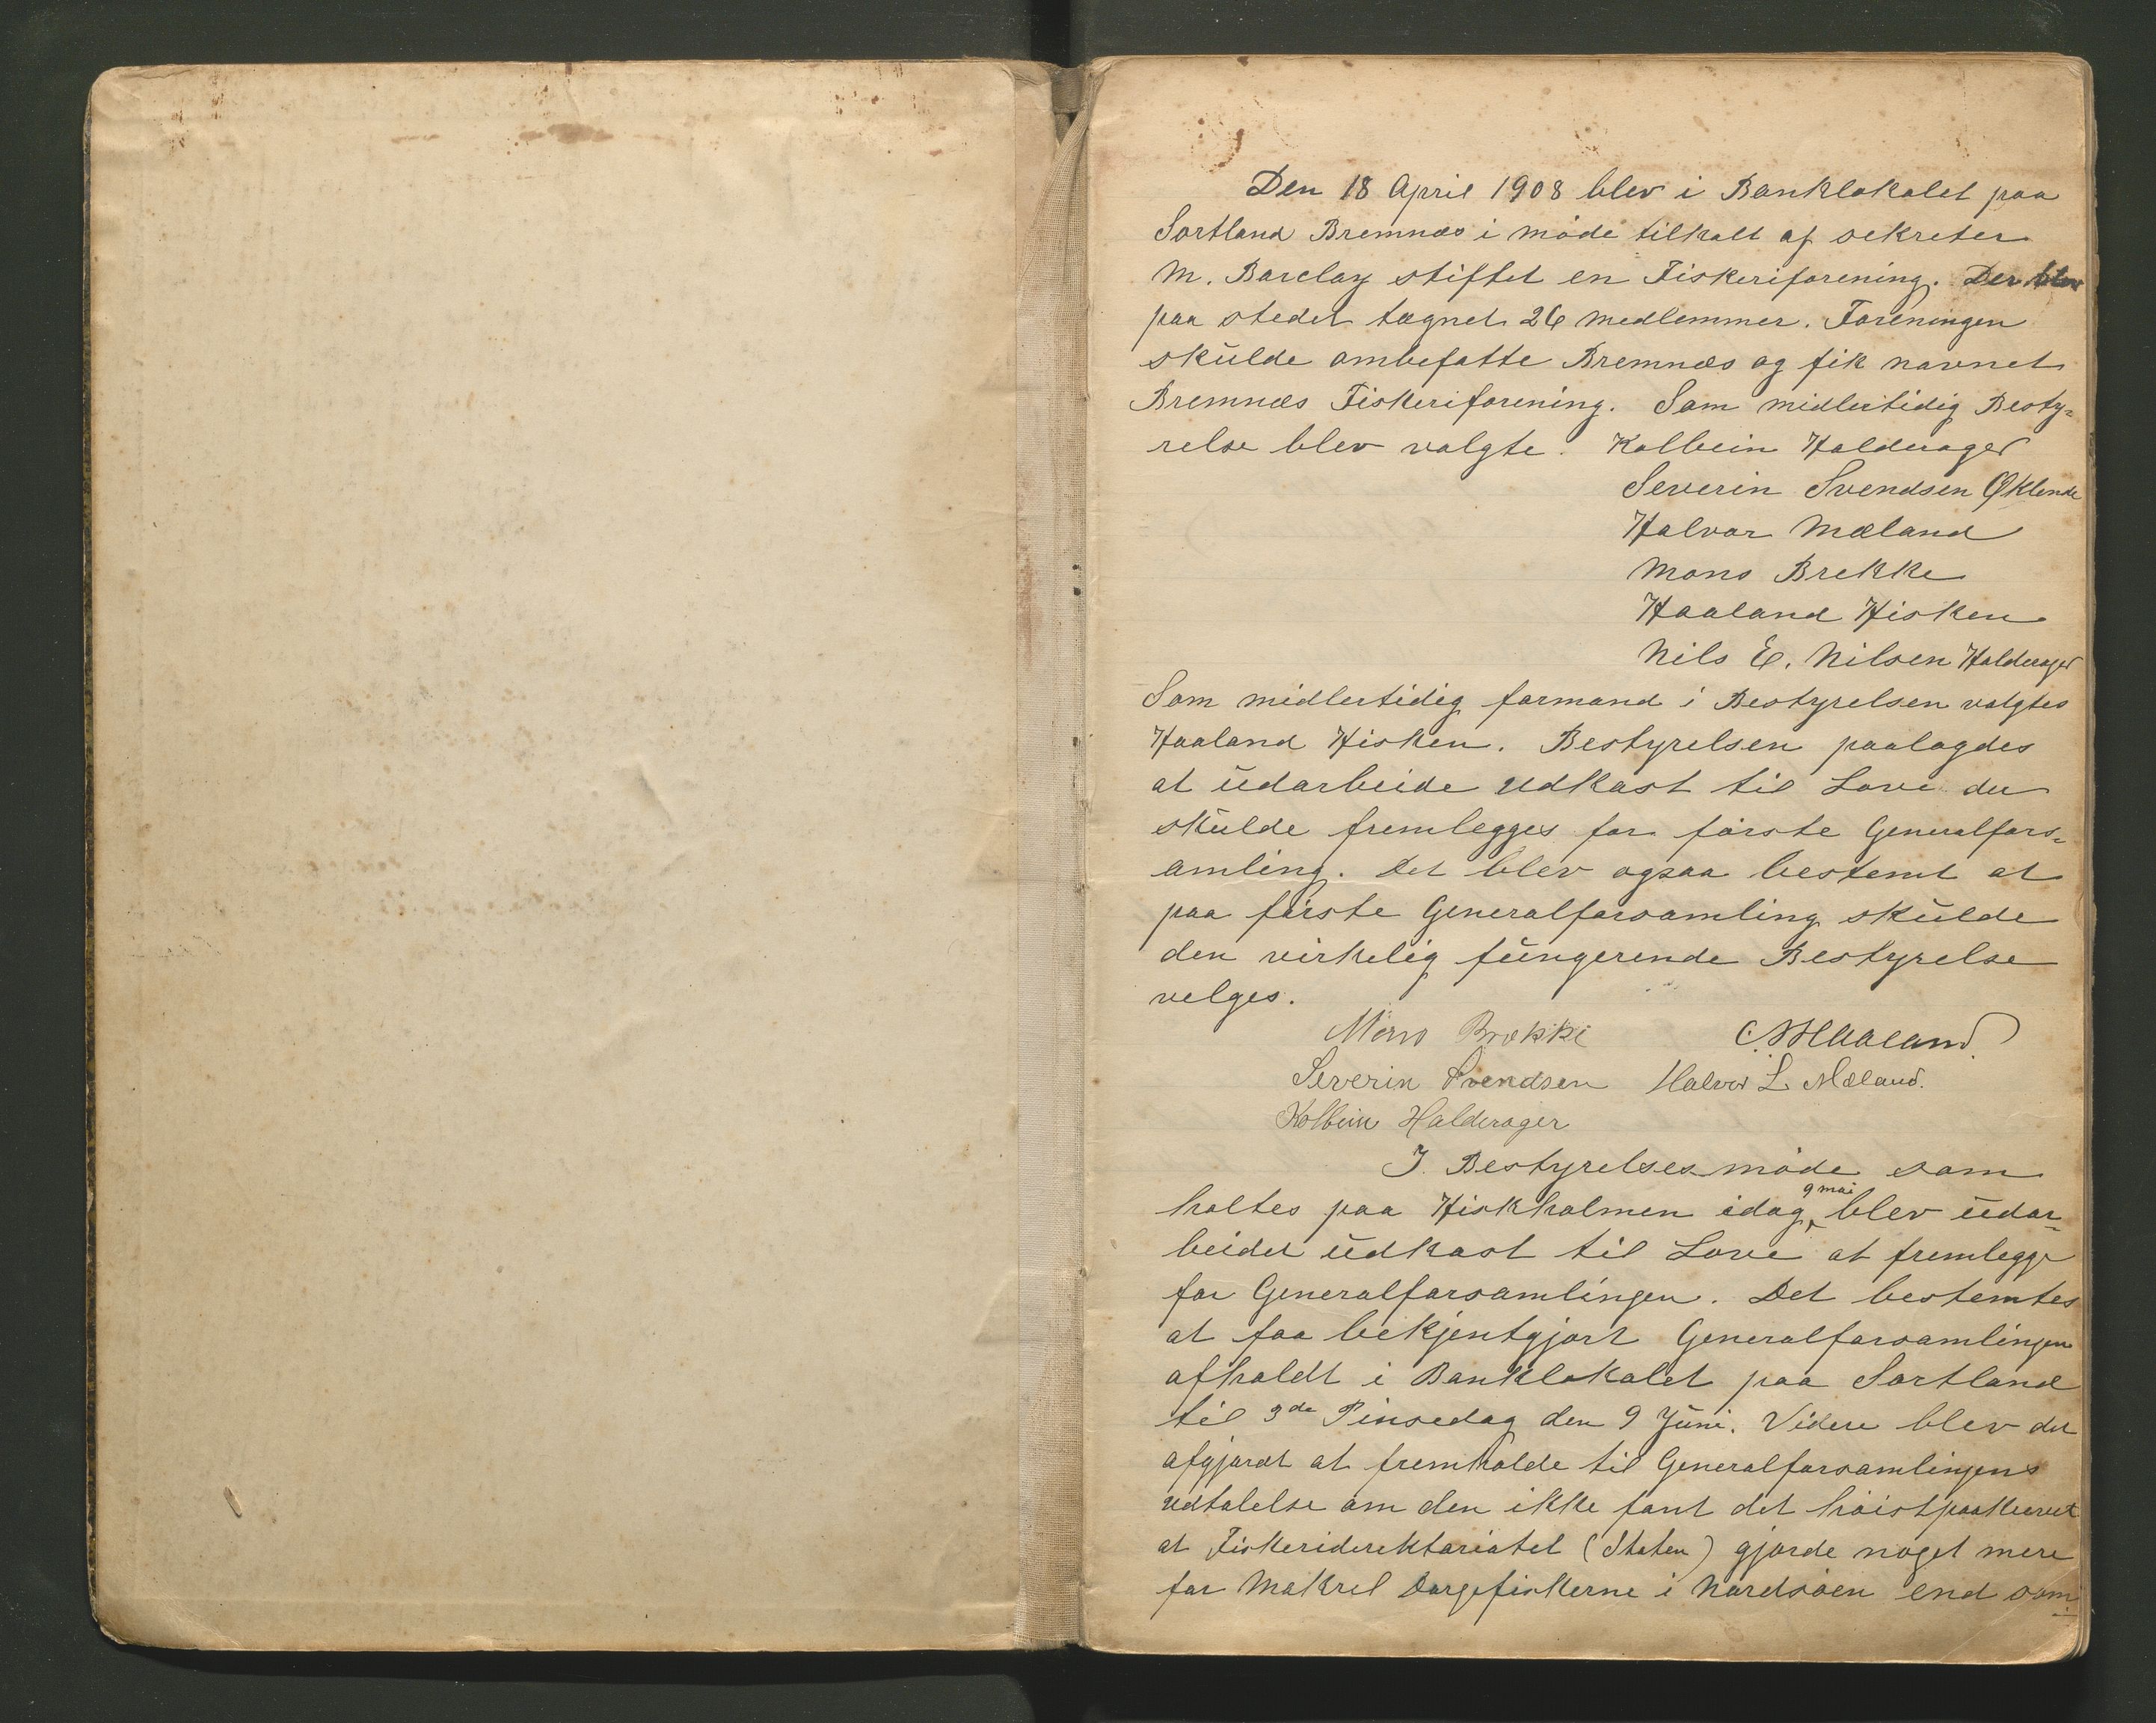 Den 18 April 1908 blev i Banklokalet paa
Sortland Bremnæs i møde tilkalt af sekretær
M. Barclay stiftet en Fiskeriforening. Der blev
paa stedet tægnet 26 medlemmer. Foreningen
skulde ombefatte Bremnæs og fik navnet
Bremnæs Fiskeriforening. Som midlertidig Besty=
relse blev valgte: Kolbein Halderager
Severin Svendsen Øklende
Halvor Mæland
Mons Brekke
Haaland Hisken
Nils E. Nilsen Halderager
Som midlertidig formand i Bestyrelsen valgtes
Haaland Hisken. Bestyrelsen paalagdes
at udarbeide udkast til Love der
skulde fremlegges for første Generalfors=
amling. Det blev ogsaa bestemt at
paa første Generalforsamling skulde
den virkelig fungerende Bestyrelse
velges.
Mons Brekke Haaland
Severin Svendsen Halvor L. Mæland.
Kolbein Halderager
I Bestyrelsesmøde som
9 mai
holtes paa Hiskholmen idag, blev udar=
beidet udkast til Love at fremlegge
for Generalforsamlingen. Det bestemtes
at faa bekjentgjort Generalforsamlingen
afholdt i Banklokalet paa Sortland
til 3de Pinsedag den 9 Juni. Videre blev det
afgjordt at fremholde til Generalforsamlingens
udtalelse om den ikke fant det høist paakrevet
at Fiskeridirektoriatet (Staten) gjorde noget mere
for Makrel Dorgefiskerne i Nordsøen end som